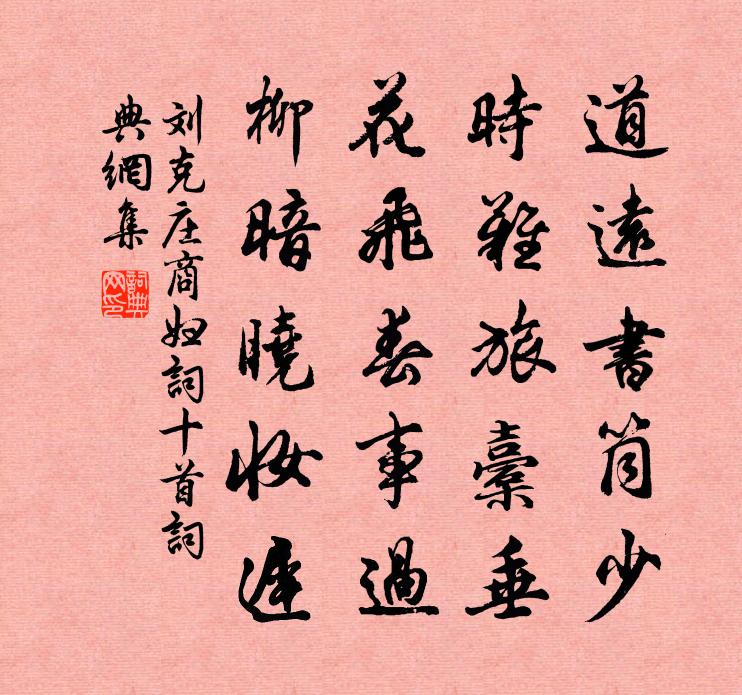 道遠書筒少
時難旅橐垂
花飛春事過
柳暗曉妝遲
刘克庄商妇詞十首詞
典網集
詞典
网印